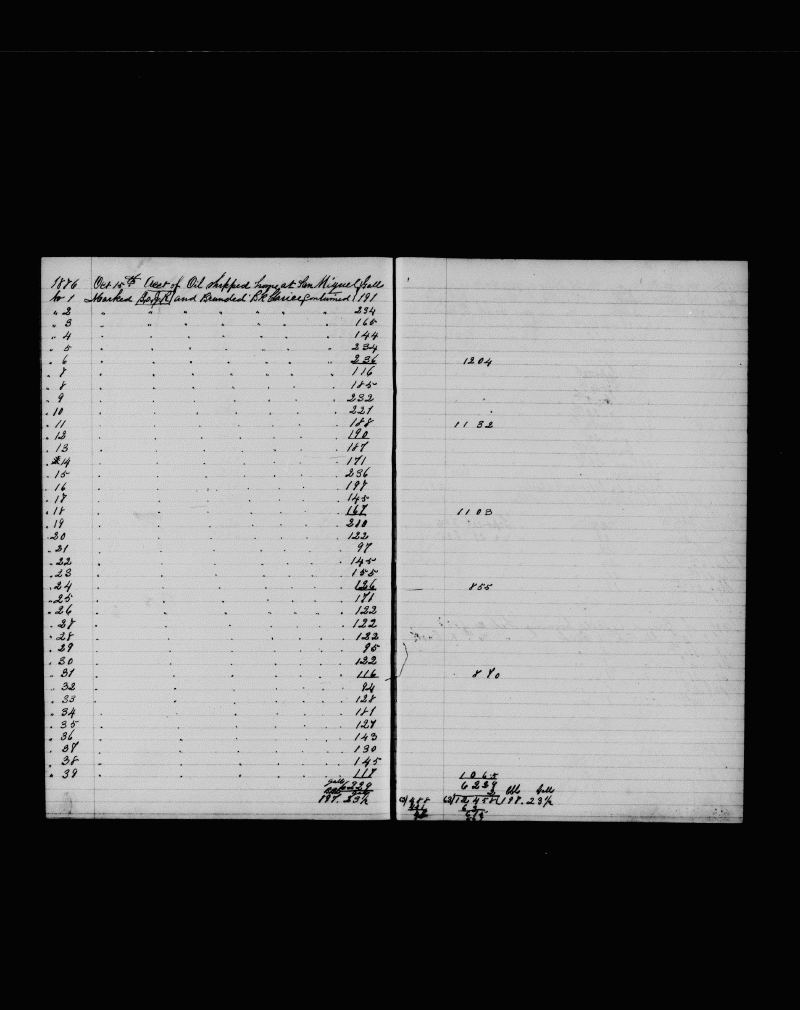 1876 Oct 15th Acct of Oil shipped home at San Miguel Gall
No 1 Marked and Branded Bk Clarice Contained 191
" 2 " " " " " " " " 234
" 3 " " " " " " " " 165
" 4 " " " " " " " " 144
" 5 " " " " " " " " 234
" 6 " " " " " " " " 236
" 7 " " " " " " " " 116
" 8 " " " " " " " 185
" 9 " " " " " " " 232
" 10 " " " " " " " 221
" 11 " " " " " " " 188
" 12 " " " " " " " 190
" 13 " " " " " " " 187
" 14 " " " " " " " 171
" 15 " " " " " " " 236
" 16 " " " " " " " 197
" 17 " " " " " " " 145
" 18 " " " " " " " 167
" 19 " " " " " " " 210
" 20 " " " " " " " 122
" 21 " " " " " " " 97
" 22 " " " " " " " 145
" 23 " " " " " " " 155
" 24 " " " " " " " 126
" 25 " " " " " " " 171
" 26 " " " " " " " 122
" 27 " " " " " " " 122
" 28 " " " " " " " 122
" 29 " " " " " " " 95
" 30 " " " " " " " 122
" 31 " " " " " " " 116
" 32 " " " " " " 94
" 33 " " " " " " 128
" 34 " " " " " " 181
" 35 " " " " " " 127
" 36 " " " " " " 143
" 37 " " " " " " 130
" 38 " " " " " " 145
" 39 " " " " " " 117
Galls 6229
Bbls Gall
197. 23½
1204
1132
1103
855
870
1065
6229
2 Bbl Gall
63)12458(197. 23½
63